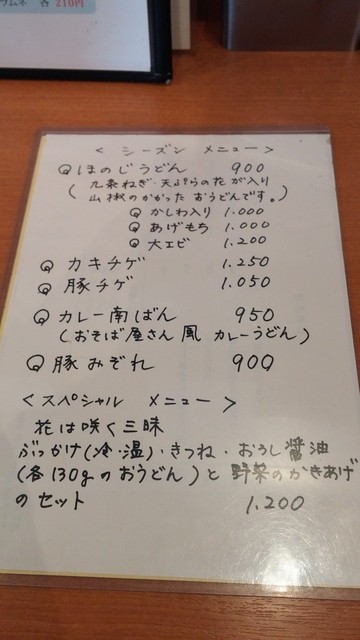 ラムネ 各 210円
＜ シーズン メニュー ＞
ほのじうどん 900
(九条ねぎ・天ぷらの花が入り
山椒のかかった おうどんです。)
かしわ入り 1.000
あげもち 1.000
大エビ 1.200
カキチゲ 1.250
豚チゲ 1.050
カレー南ばん 950
(おそば屋さん風 カレーうどん)
豚みぞれ 900
＜スペシャル メニュー＞
花は咲く三昧
ぶっかけ(冷・温)・きつね・おろし醤油
(各130gのおうどん)と 野菜のかきあげ
のセット 1.200